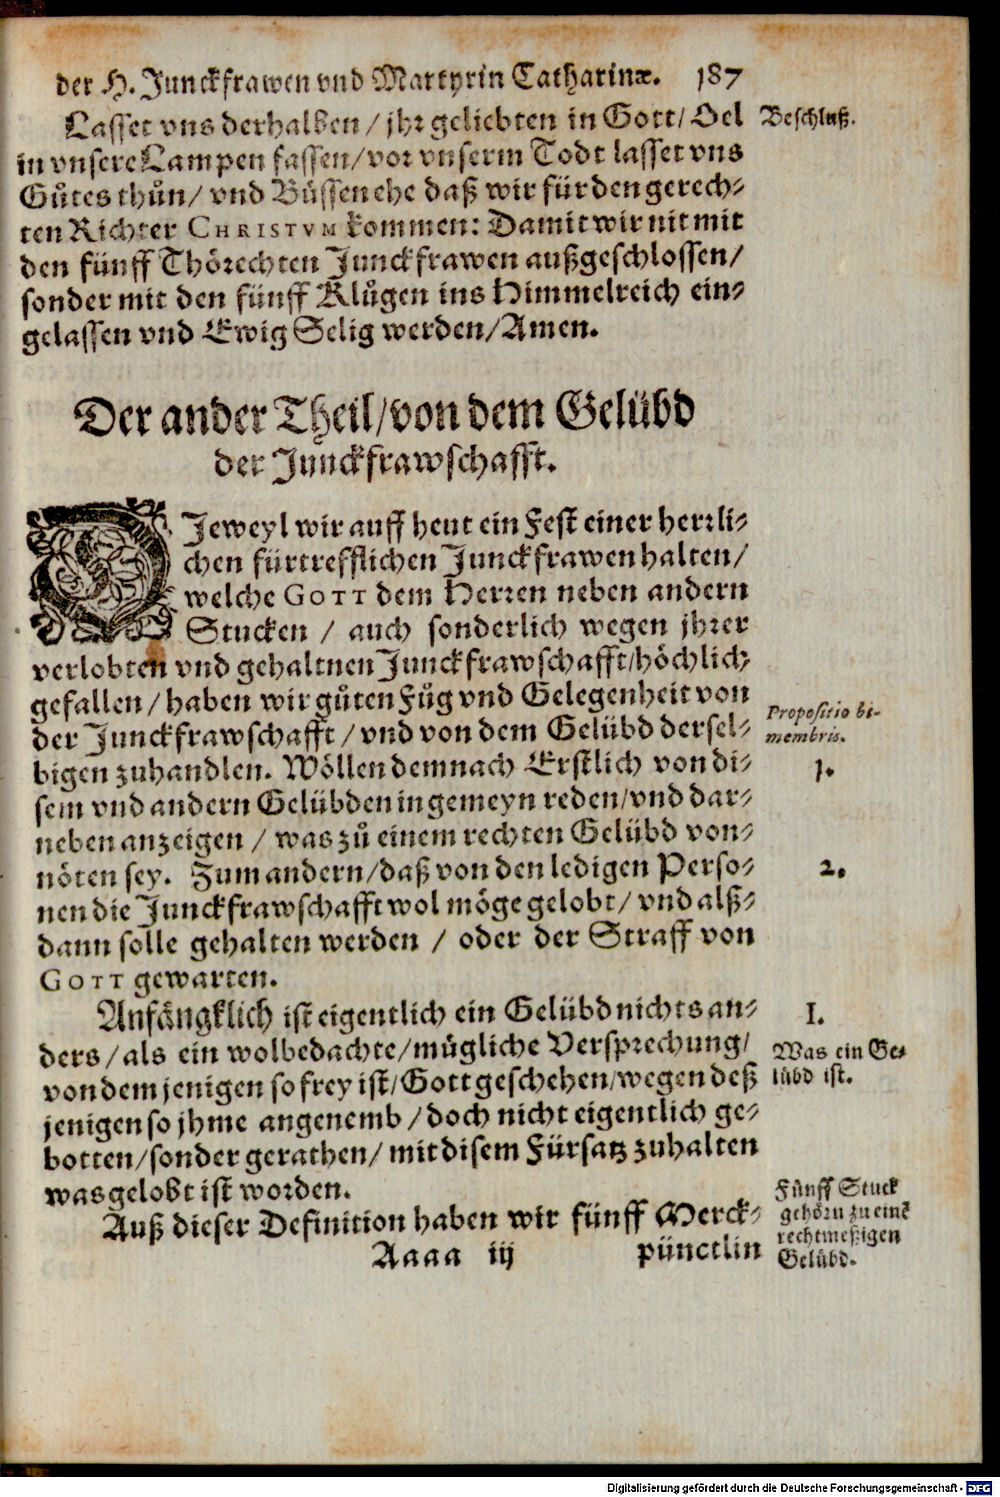 der H. Junckfrawen vnd Martyrin Catharinæ. 187
Lasset vns derhalben / jhr geliebten in Gott / Oel
Beschluß.
in vnsere Lampen fassen / vor vnserm Todt lasset vns
Gůtes thůn / vnd Büssen ehe daß wir für den gerech-
ten Richter CHRISTVM kommen: Damit wir nit mit
den fünff Thörechten Junckfrawen außgeschlossen /
sonder mit den fünff Klůgen ins Himmelreich ein-
gelassen vnd Ewig Selig werden / Amen.
Der ander Theil / von dem Gelübd
der Junckfrawschafft.
DJeweyl wir auff heut ein Fest einer herrli-
chen fürtrefflichen Junckfrawen halten /
welche GOTT dem Herren neben andern
Stucken / auch sonderlich wegen jhrer
verlobten vnd gehaltnen Junckfrawschafft / höchlich
gefallen / haben wir gůten Fůg vnd Gelegenheit von
der Junckfrawschafft / vnd von dem Gelübd dersel-
Propositio bi-
membris.
bigen zuhandlen. Wöllen demnach Erstlich von di-
1.
sem vnd andern Gelübden in gemeyn reden / vnd dar-
neben anzeigen / was zů einem rechten Gelübd von-
nöten sey. Zum andern / daß von den ledigen Perso-
2.
nen die Junckfrawschafft wol möge gelobt / vnd alß-
dann solle gehalten werden / oder der Straff von
GOTT gewarten.
Anfängklich ist eigentlich ein Gelübd nichts an-
I.
ders / als ein wolbedachte / mügliche Versprechung /
Was ein Ge-
lübd ist.
von dem jenigen so frey ist / Gott geschehen / wegen deß
jenigen so jhme angenemb / doch nicht eigentlich ge-
botten / sonder gerathen / mit disem Fürsatz zuhalten
was gelobt ist worden.
Fünff Stuck
gehörn zu einẽ
rechtmeßigen
Gelübd.
Auß dieser Definition haben wir fünff Merck-
Aaaa iij pünctlin
Digitalisierung gefördert durch die Deutsche Forschungsgemeinschaft - DFG